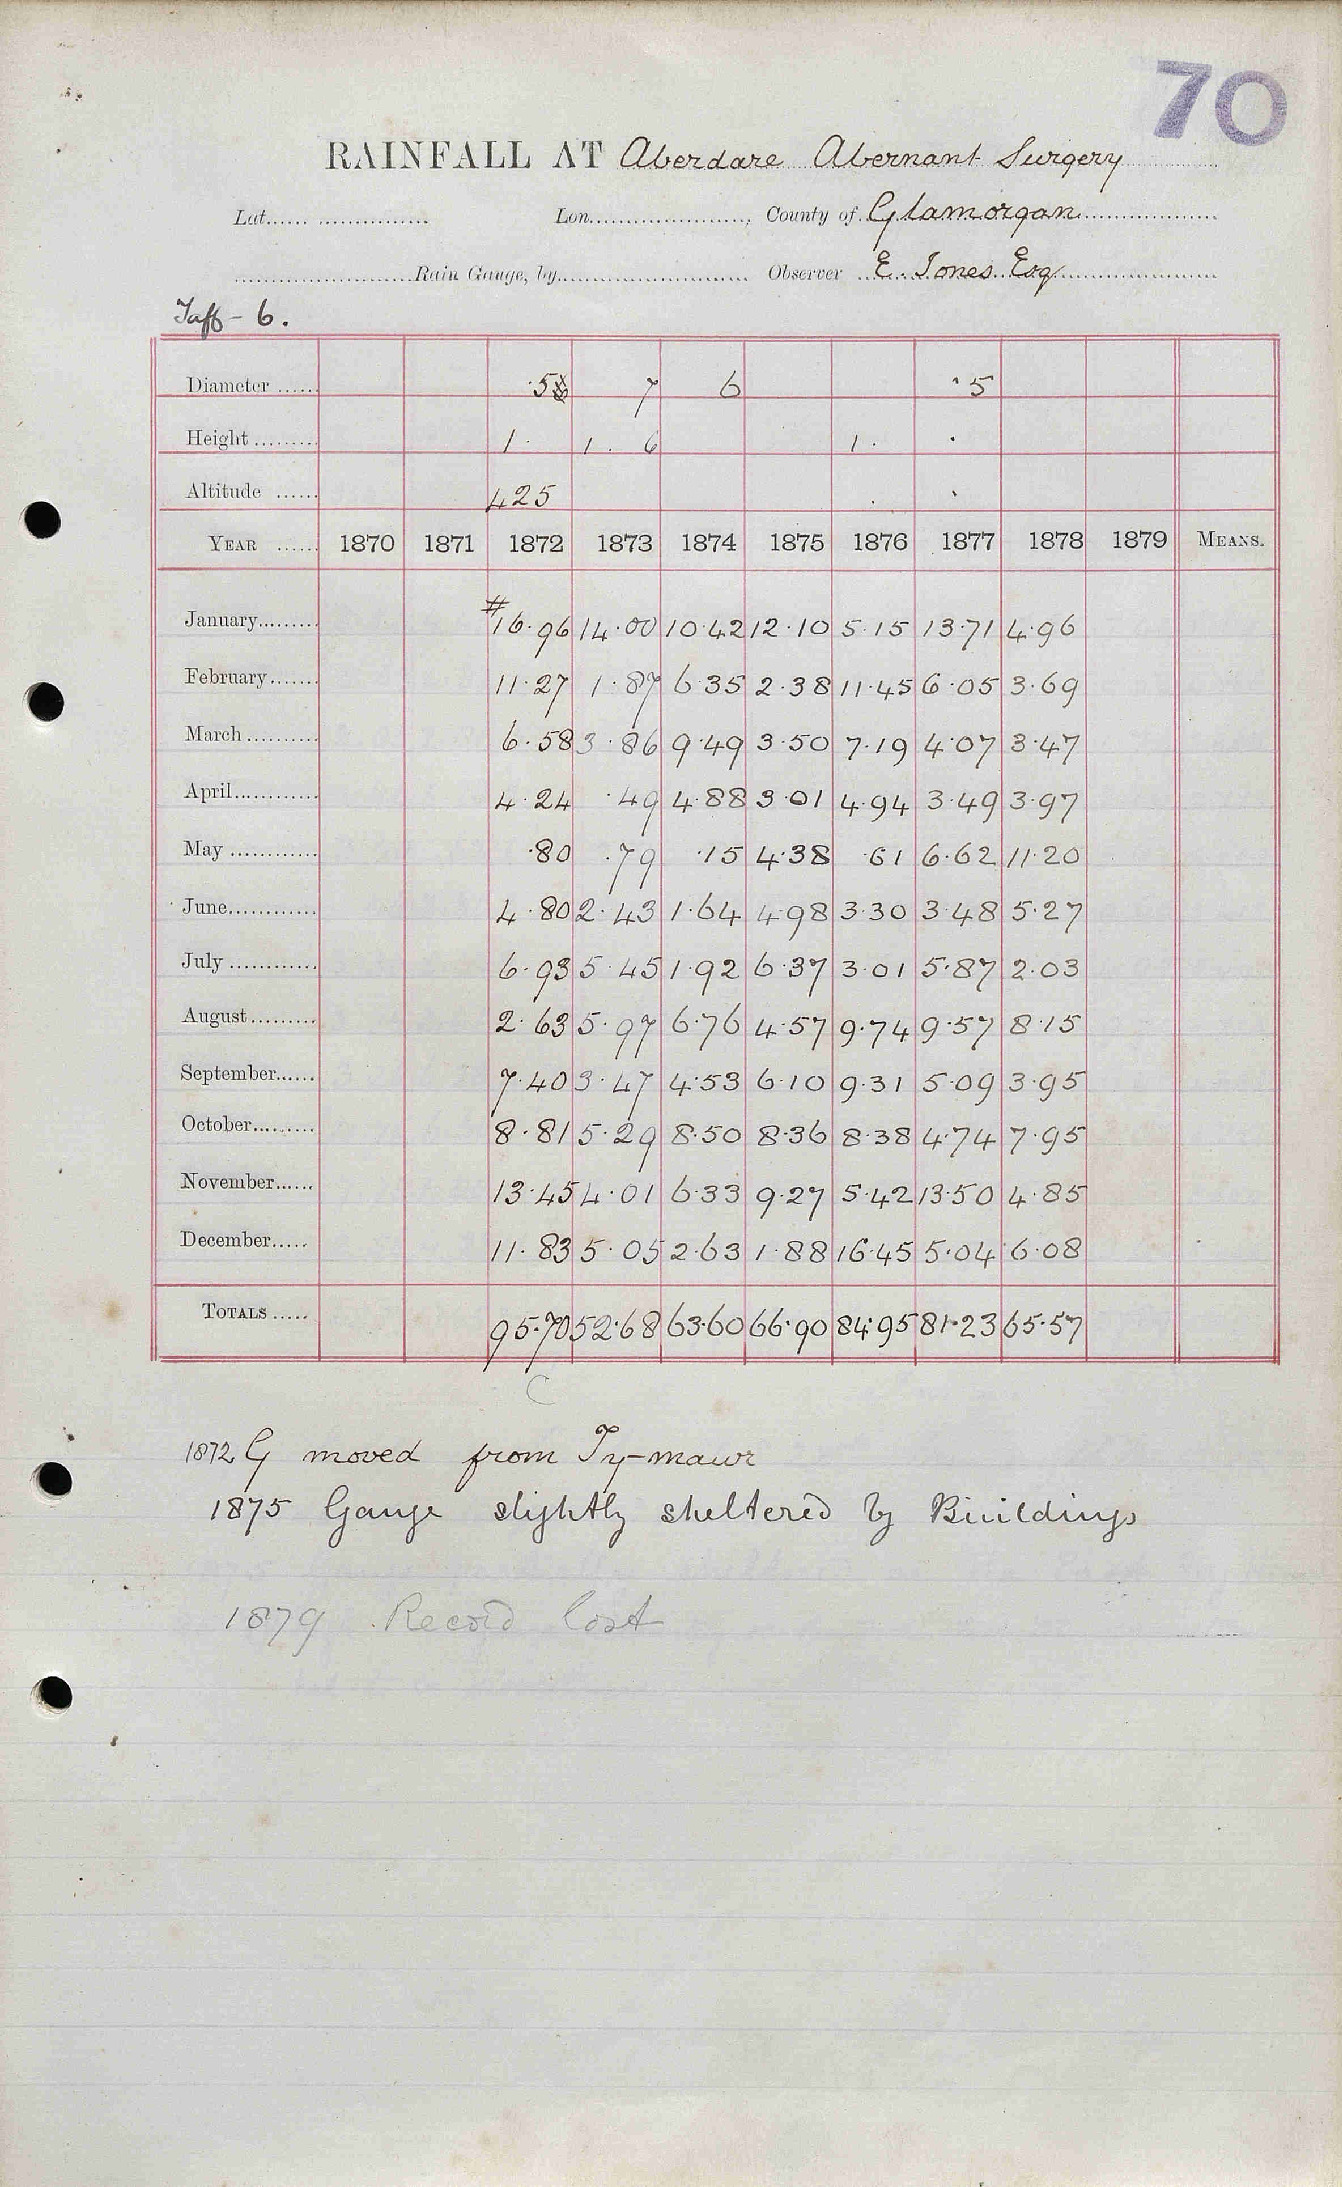 70
RAINFALL AT Aberdare Abernant Surgery
Lat. Lon. County of Glamorgan
Rain Gauge, by Observer E. Jones Esq
Taff - 6.
Diameter 5 7 6 5
Height 1 1. 6 1.
Altitude 425
YEAR 1870 1871 1872 1873 1874 1875 1876 1877 1878 1879 MEANS.
January #16.96 14.00 10.42 12.10 5.15 13.71 4.96
February 11.27 1.87 6.35 2.38 11.45 6.05 3.69
March 6.58 3.86 9.49 3.50 7.19 4.07 3.47
April 4.24 .49 4.88 3.01 4.94 3.49 3.97
May .80 .79 .15 4.38 .61 6.62 11.20
June 4.80 2.43 1.64 4.98 3.30 3.48 5.27
July 6.93 5.45 1.92 6.37 3.01 5.87 2.03
August 2.63 5.97 6.76 4.57 9.74 9.57 8.15
September 7.40 3.47 4.53 6.10 9.31 5.09 3.95
October 8.81 5.29 8.50 8.36 8.38 4.74 7.95
November 13.45 4.01 6.33 9.27 5.42 13.50 4.85
December 11.83 5.05 2.63 1.88 16.45 5.04 6.08
TOTALS 95.70 52.68 63.60 66.90 84.95 81.23 65.57
C
1872 G moved from Ty-mawr
1875 Gauge slightly sheltered by Buildings
1879 Record lost